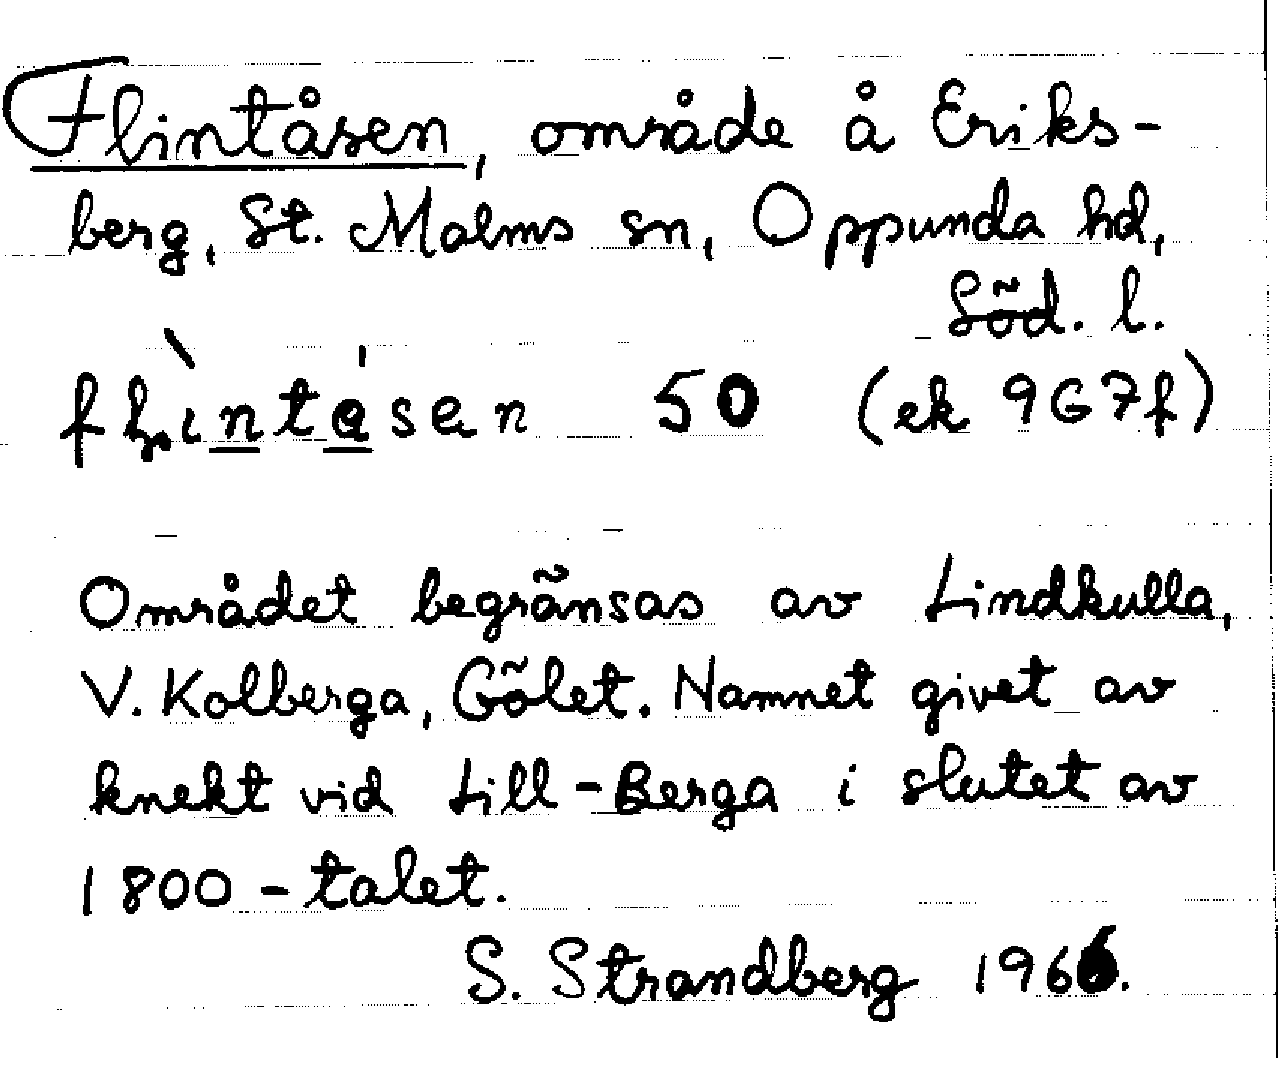 Flintåsen, område å Eriks-
berg, St. Malms sn, Oppunda hd,
Söd. l.
50 (ek 9G7f)
Området begränsas av Lindkulla,
V. Kolberga, Gölet. Namnet givet av
knekt vid Lill-Berga i slutet av
1800-talet.
S. Strandberg 1966.